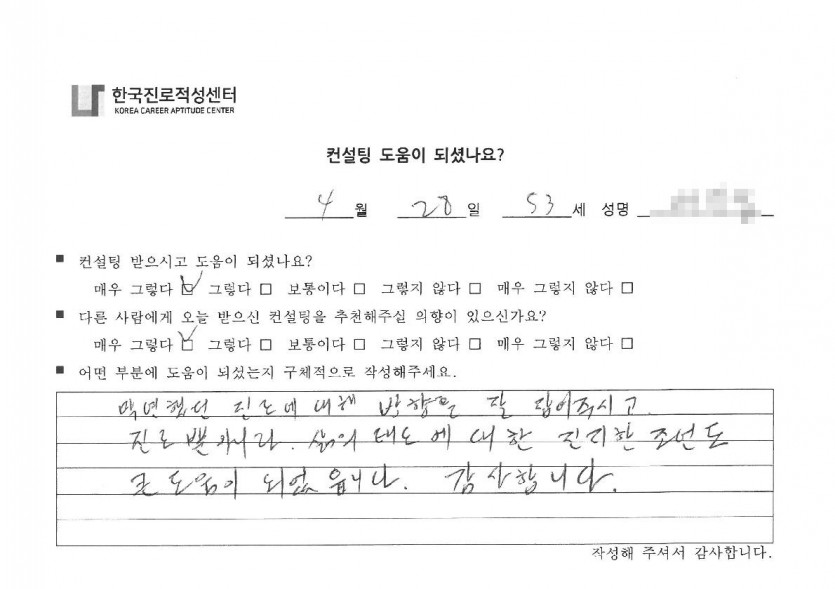 한국진로적성센터
KOREA CAREER APTITUDE CENTER
컨설팅 도움이 되셨나요?
4 월 28 일 53 세 성명
■ 컨설팅 받으시고 도움이 되셨나요?
매우 그렇다 ☑ 그렇다 □ 보통이다 □ 그렇지 않다 □ 매우 그렇지 않다 □
■ 다른 사람에게 오늘 받으신 컨설팅을 추천해주실 의향이 있으신가요?
매우 그렇다 ☑ 그렇다 □ 보통이다 □ 그렇지 않다 □ 매우 그렇지 않다 □
■ 어떤 부분에 도움이 되셨는지 구체적으로 작성해주세요.
막연했던 진로에 대해 방향을 잘 잡아주시고
진로뿐 아니라. 삶의 태도에 대한 진지한 조언도
큰 도움이 되었읍니다. 감사합니다.
작성해 주셔서 감사합니다.